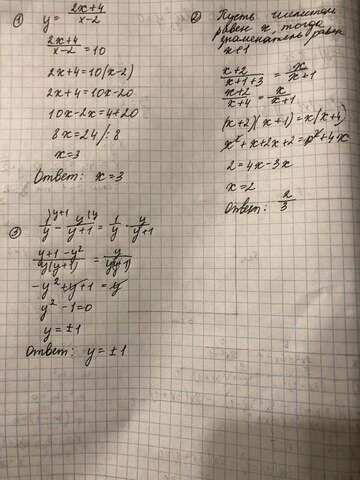 ① y = (2x+4)/(x-2)
(2x+4)/(x-2) = 10
2x+4 = 10(x-2)
2x+4 = 10x-20
10x-2x = 4+20
8x = 24 /: 8
x = 3
Ответ: x = 3
② Пусть числитель
равен x, тогда
знаменатель равен
x+1
(x+2)/(x+1+3) = x/(x+1)
(x+2)/(x+4) = x/(x+1)
(x+2)(x+1) = x(x+4)
x²+x+2x+2 = x²+4x
2 = 4x-3x
x = 2
Ответ: 2/3
③ 1/y - y/(y+1) = 1/y · y/(y+1)
(y+1-y²)/(y(y+1)) = y/(y(y+1))
-y²+y+1 = y
y²-1=0
y = ±1
Ответ: y = ±1